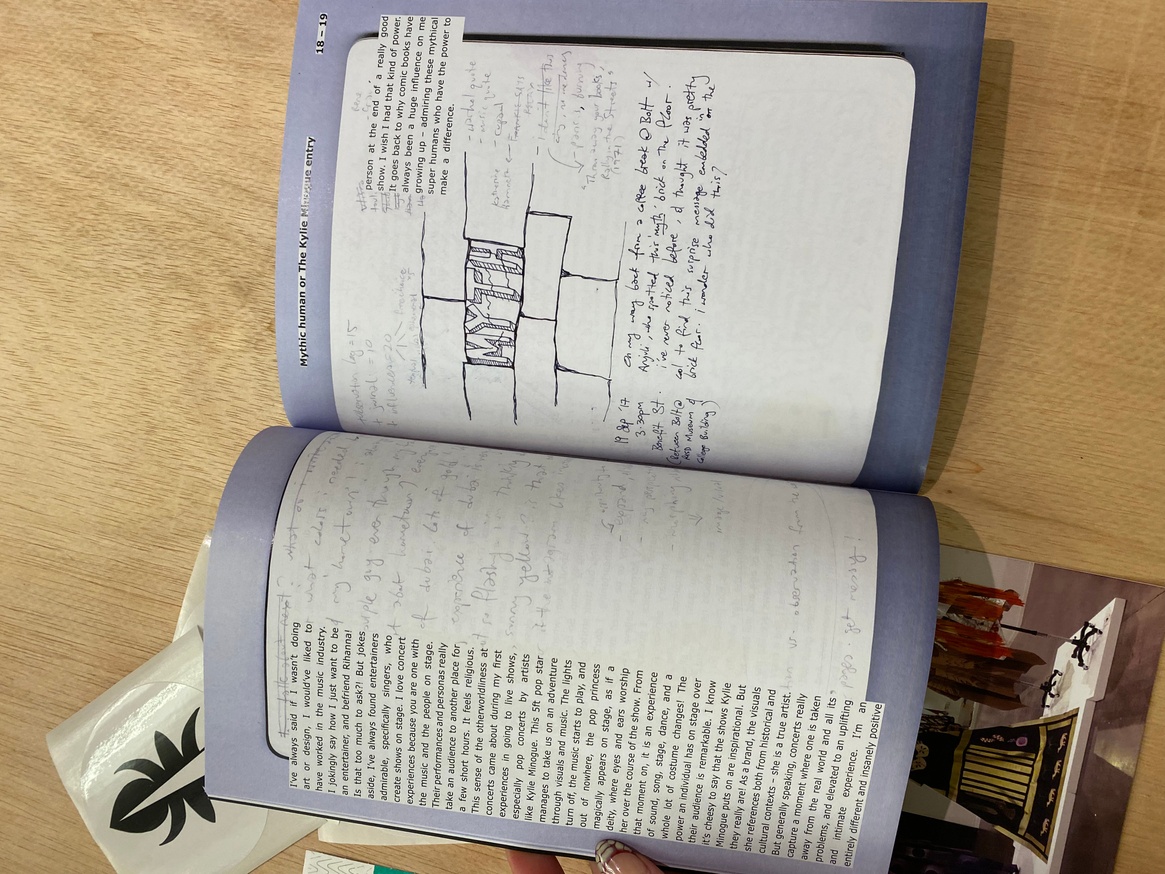 I've always said if I wasn't doing
art or design, I would've liked to
have worked in the music industry.
I jokingly say how I just want to be
an entertainer, and befriend Rihanna!
Is that too much to ask?! But jokes
aside, I've always found entertainers
admirable, specifically singers, who
create shows on stage. I love concert
experiences because you are one with
the music and the people on stage.
Their performances and personas really
take an audience to another place for
a few short hours. It feels religious.
This sense of the otherworldliness at
concerts came about during my first
experiences in going to live shows,
especially pop concerts by artists
like Kylie Minogue. This 5ft pop star
manages to take us on an adventure
through visuals and music. The lights
turn off, the music starts to play, and
out of nowhere, the pop princess
magically appears on stage, as if a
deity, where eyes and ears worship
her over the course of the show. From
that moment on, it is an experience
of sound, song, stage, dance, and a
whole lot of costume changes! The
power an individual has on stage over
their audience is remarkable. I know
it's cheesy to say that the shows Kylie
Minogue puts on are inspirational. But
they really are! As a brand, the visuals
she references both from historical and
cultural contexts – she is a true artist.
But generally speaking, concerts really
capture a moment where one is taken
away from the real world and all its
problems, and elevated to an uplifting
and intimate experience. I'm an
entirely different and insanely positive
what colors i needed
my hometown!
guy even through my
about hometown?
of dubai lots of gold
experience of dubai
so flashy
sunny yellow?
vs. observation from
pages - get messy!
Mythic human or The Kylie Minogue entry
18 – 19
person at the end of a really good
show. I wish I had that kind of power.
It goes back to why comic books have
always been a huge influence on me
growing up – admiring these mythical
super humans who have the power to
make a difference.
observation log = 15
+ journal = 10
+ influences = 20
MYTH
- music quote
Katharine
Hamnett
- I don't like this
"Throw away your books,
Rally in the Streets"
(1971)
19 Sep '17
3.30pm
Benefit St.
(Between Bolt @
RISD Museum &
College Building)
On my way back from a coffee break @ Bolt w/
Anjuli, who spotted this 'myth' brick on the floor.
i've never noticed before, & thought it was pretty
cool to find this surprise message embedded in the
brick floor. I wonder who did this?